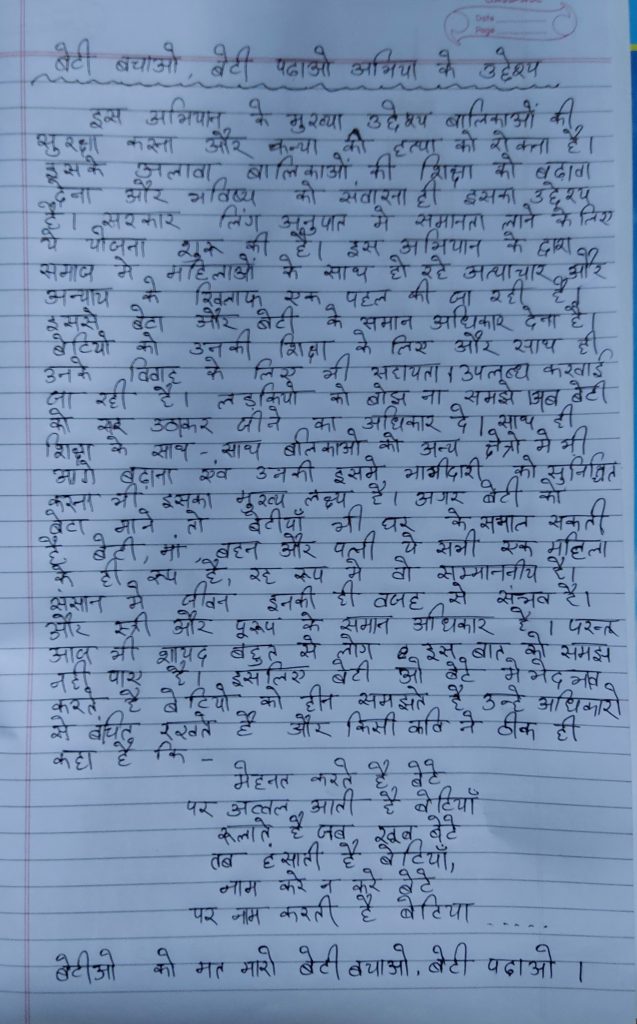 Date
Page
बेटी बचाओ, बेटी पढाओ अभिया के उद्देश्य
इस अभियान के मुख्या उद्देश्य बालिकाओं की
सुरक्षा करना और कन्या की हत्या को रोकना है।
इसके अलावा बालिकाओं की शिक्षा को बढावा
देना और भविष्य को संवारना ही इसका उद्देश्य
है। सरकार लिंग अनुपात मे समानता लाने के लिए
ये योजना शुरू की है। इस अभियान के द्वारा
समाज मे महिलाओं के साथ हो रहे अत्याचार और
अन्याय के खिलाफ एक पहल की जा रही है।
इससे बेटा और बेटी के समान अधिकार देना है।
बेटियो को उनकी शिक्षा के लिए और साथ ही
उनके विवाह के लिए भी सहायता उपलब्ध करवाई
जा रही है। लडकियो को बोझ ना समझे। अब बेटी
को सर उठाकर जीने का अधिकार दे। साथ ही
शिक्षा के साथ - साथ बालिकाओ को अन्य क्षेत्रो मे भी
आगे बढ़ाना एवं उनकी इसमे भागीदारी को सुनिश्चित
करना भी इसका मुख्य लक्ष्य है। अगर बेटी को
बेटा माने तो बेटीयाँ भी घर के सभाल सकती
है बेटी, मां, बहन और पत्नी ये सभी एक महिला
के ही रूप है, रह रूप मे वो सम्माननीय है।
संसान मे जीवन इनकी ही वजह से संभव है।
और स्त्री और पूरूष के समान अधिकार है। परन्तु
आज भी शायद बहुत से लोग इस बात को समझ
नही पाए है। इसलिए बेटी ओ बेटे मे भेद भाव
करते है बेटियो को हीन समझते है उन्हे अधिकारो
से वंचित रखते है और किसी कवि ने ठीक ही
कहा है कि -
मेहनत करते है बेटे
पर अव्वल आती है बेटियाँ
रूलाते है जब खूब बेटे
तब हंसाती है बेटियाँ,
नाम करे न करे बेटे
पर नाम करती है बेटिया .....
बेटीओ को मत मारो बेटी बचाओ, बेटी पढाओ ।